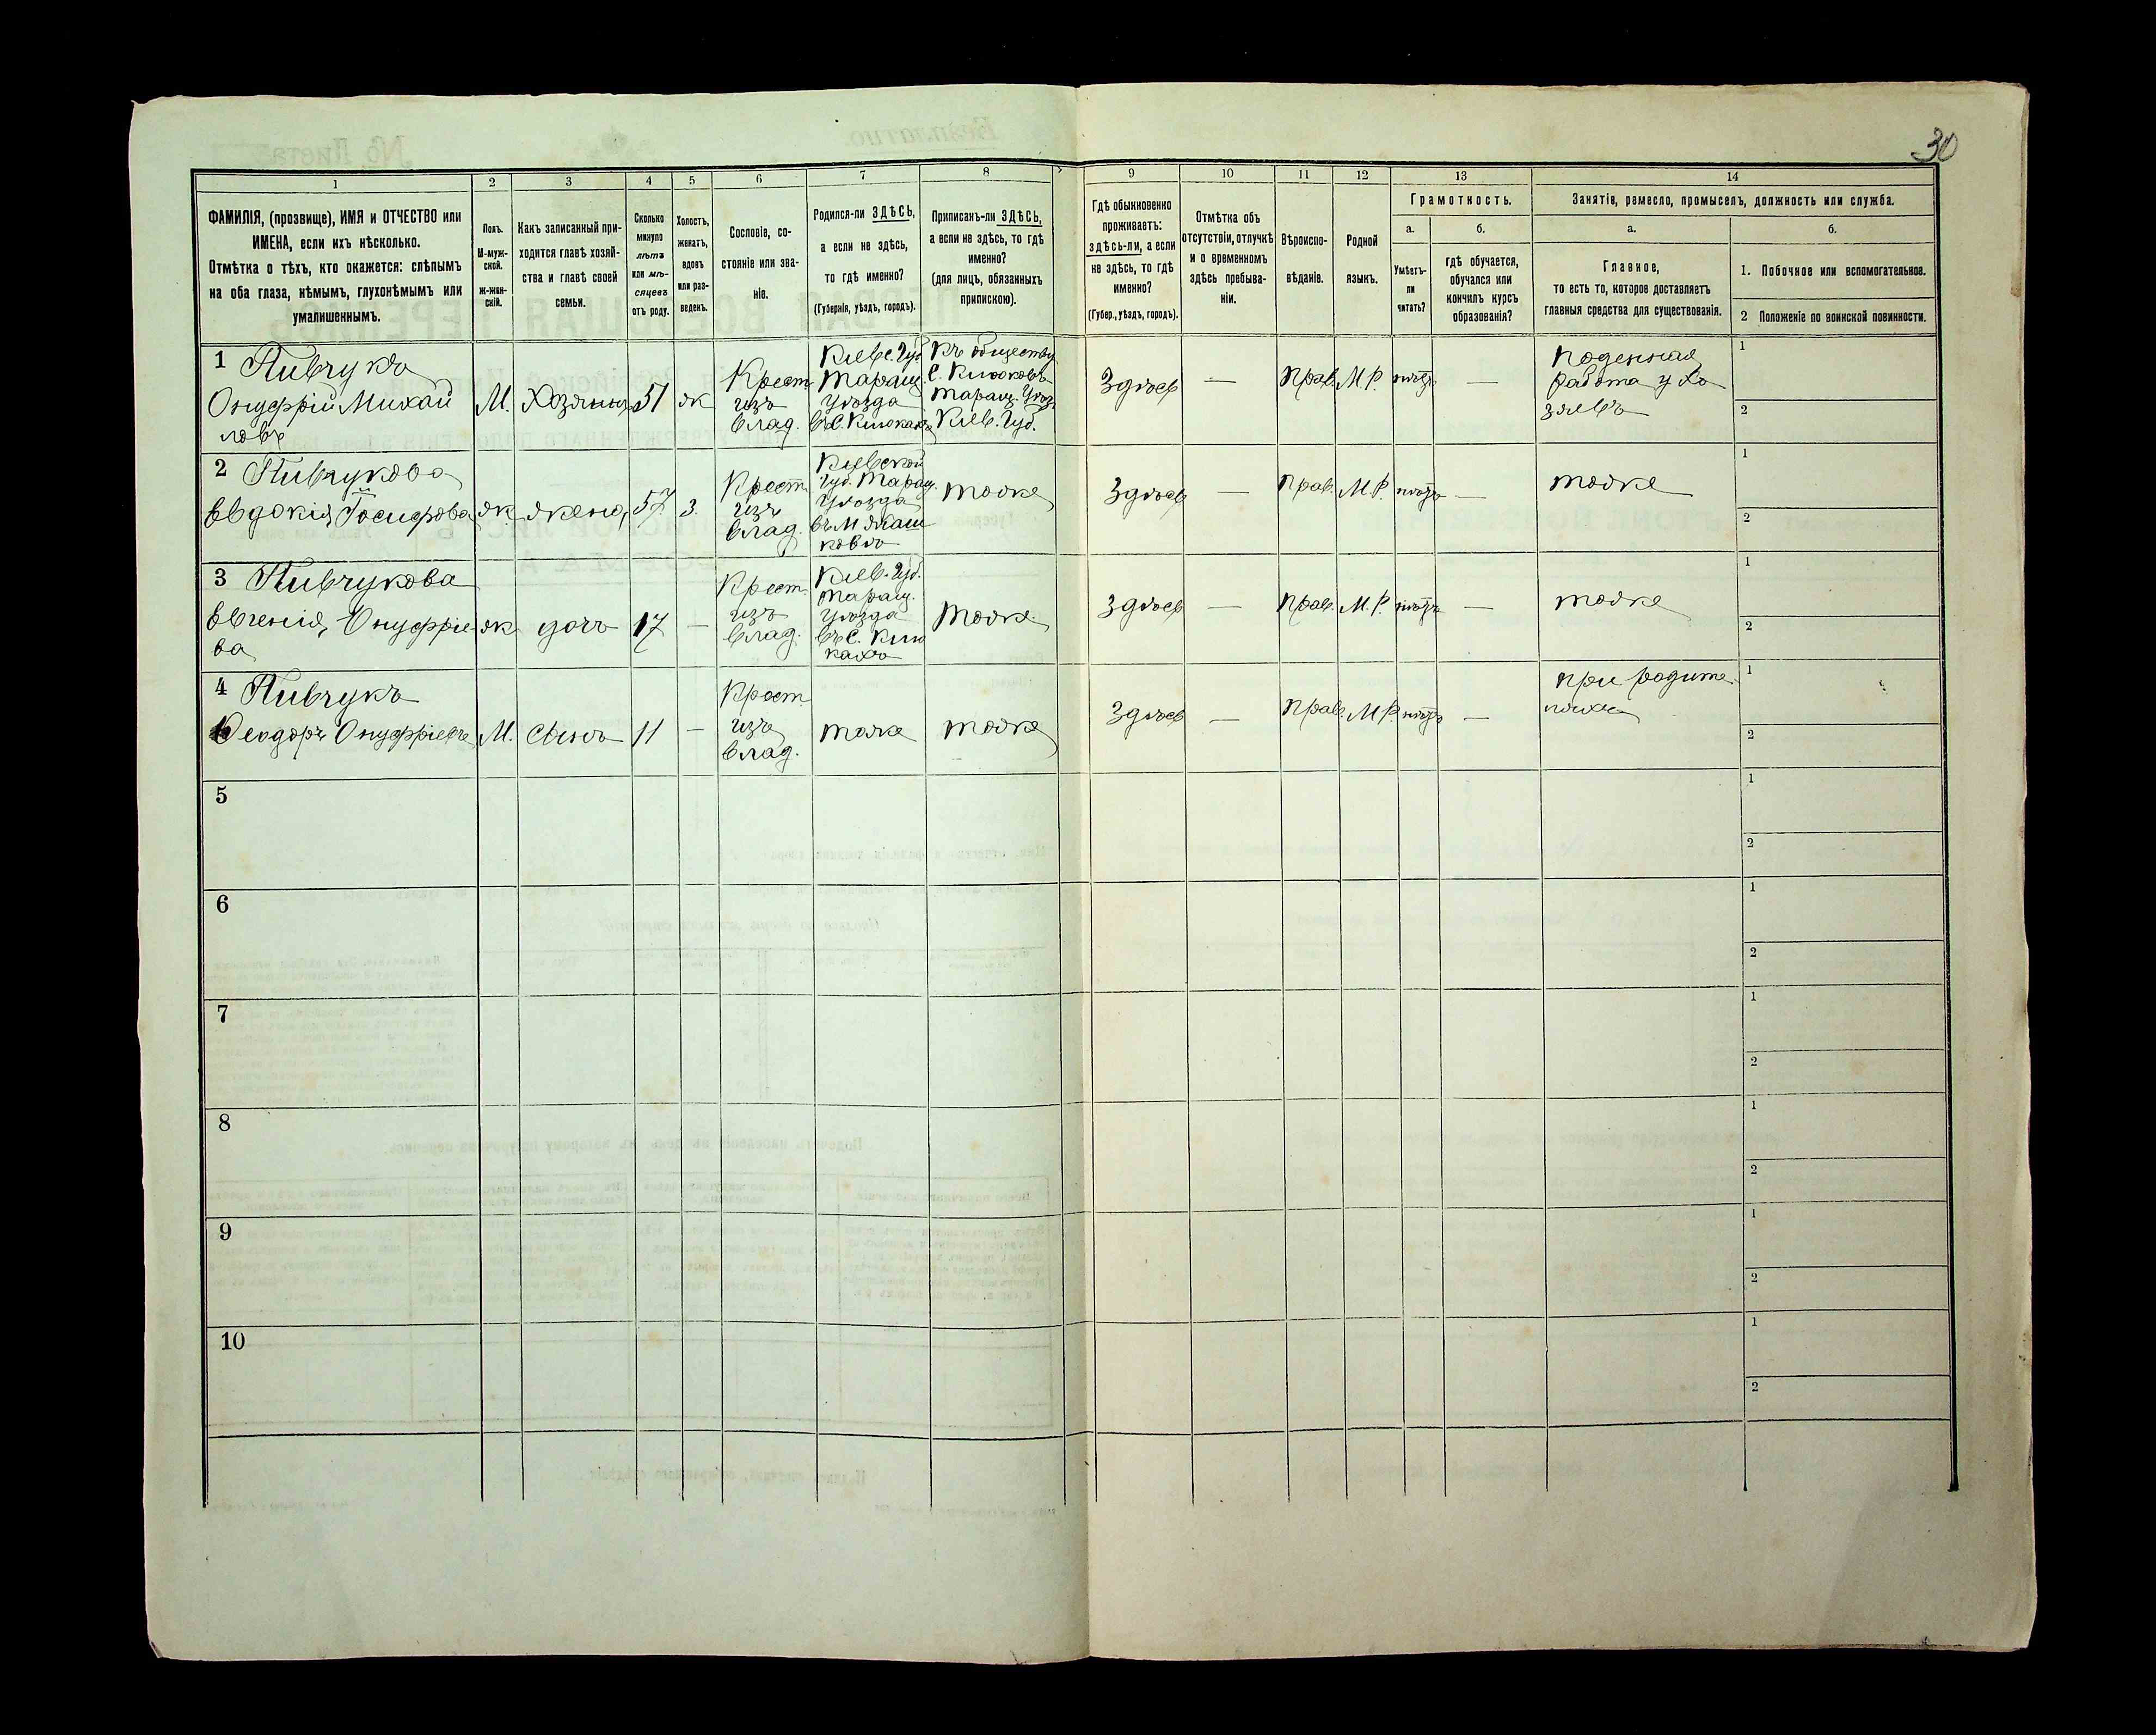 30
1
2
3
4
5
6
7
8
9
10
11
12
13
14
ФАМИЛІЯ, (прозвище), ИМЯ и ОТЧЕСТВО или
ИМЕНА, если ихъ нѣсколько.
Отмѣтка о тѣхъ, кто окажется: слѣпымъ
на оба глаза, нѣмымъ, глухонѣмымъ или
умалишеннымъ.
Полъ.
М-муж-
ской.
ж-жен-
скій.
Какъ записанный при-
ходится главѣ хозяй-
ства и главѣ своей
семьи.
Сколько
минуло
лѣтъ
или мѣ-
сяцевъ
отъ роду.
Холостъ,
женатъ,
вдовъ
или раз-
веденъ.
Сословіе, со-
стояніе или зва-
ніе.
Родился-ли ЗДѢСЬ,
а если не здѣсь,
то гдѣ именно?
(Губернія, уѣздъ, городъ).
Приписанъ-ли ЗДѢСЬ,
а если не здѣсь, то гдѣ
именно?
(для лицъ, обязанныхъ
припискою).
Гдѣ обыкновенно
проживаетъ:
здѣсь-ли, а если
не здѣсь, то гдѣ
именно?
(Губер., уѣздъ, городъ).
Отмѣтка объ
отсутствіи, отлучкѣ
и о временномъ
здѣсь пребыва-
ніи.
Вѣроиспо-
вѣданіе.
Родной
языкъ.
Грамотность.
а.
Умѣетъ-
ли
читать?
б.
гдѣ обучается,
обучался или
кончилъ курсъ
образованія?
Занятія, ремесло, промыселъ, должность или служба.
а.
Главное,
то есть то, которое доставляетъ
главныя средства для существованія.
б.
1. Побочное или вспомогательное.
2 Положеніе по воинской повинности.
1 Пивчукъ
Онуфрій Михай
ловъ
М.
Хозяинъ
51
ж
Крест
изъ
влад.
Кіевс. Губ
Таращ.
Уѣзда
въ С. Кишкахъ
Къ обществу
С.
Таращ. Уѣз.
Кіев. Губ.
Здѣсь
—
Прав.
М.Р.
нѣтъ
—
поденная
работа у хо
зяевъ
1
2
2 Пивчукова
Евдокія Іосифова
ж.
жена
57
З.
Крест
изъ
влад.
Кіевской
Губ. Таращ.
Уѣзда
въ М.
тоже
Здѣсь
—
Прав.
М.Р.
нѣтъ
—
тоже
1
2
3 Пивчукова
Евгенія Онуфріе-
ва
ж
дочь
17
—
Крест.
изъ
влад.
Кіев. Губ.
Таращ.
Уѣзда
въ С. Киш
кахъ
Тоже
Здѣсь
—
Прав.
М.Р.
нѣтъ
—
тоже
1
2
4 Пивчукъ
Феодоръ Онуфріевъ
М.
Сынъ
11
—
Крест
изъ
влад.
тоже
тоже
Здѣсь
—
Прав.
М.Р.
нѣтъ
—
при родите
ляхъ
1
2
5
1
2
6
1
2
7
1
2
8
1
2
9
1
2
10
1
2